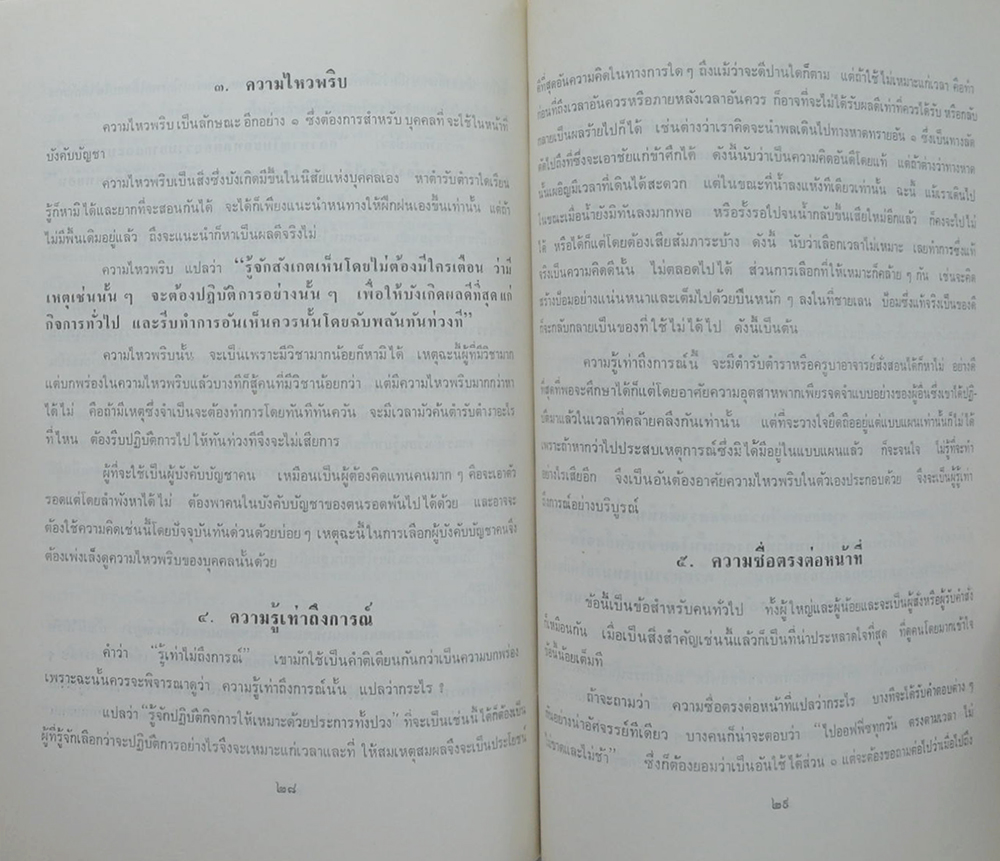 ๓. ความไหวพริบ
ความไหวพริบ เป็นลักษณะ อีกอย่าง ๑ ซึ่งต้องการสำหรับ บุคคลที่ จะใช้ในหน้าที่
บังคับบัญชา
ความไหวพริบเป็นสิ่งซึ่งบังเกิดมีขึ้นในนิสัยแห่งบุคคลเอง หาตำรับตำราใดเรียน
รู้ก็หามิได้และยากที่จะสอนกันได้ จะได้ก็เพียงแนะนำหนทางให้ฝึกฝนเองขึ้นเท่านั้น แต่ถ้า
ไม่มีพื้นเดิมอยู่แล้ว ถึงจะแนะนำก็หาเป็นผลดีจริงไม่
ความไหวพริบ แปลว่า “รู้จักสังเกตเห็นโดยไม่ต้องมีใครเตือน ว่ามี
เหตุเช่นนั้น ๆ จะต้องปฏิบัติการอย่างนั้น ๆ เพื่อให้บังเกิดผลดีที่สุด แก่
กิจการทั่วไป และรีบทำการอันเห็นควรนั้นโดยฉับพลันทันท่วงที”
ความไหวพริบนั้น จะเป็นเพราะมีวิชามากน้อยก็หามิได้ เหตุฉะนี้ผู้ที่มีวิชามาก
แต่บกพร่องในความไหวพริบแล้วบางทีก็สู้คนที่มีวิชาน้อยกว่า แต่มีความไหวพริบมากกว่าหา
ได้ไม่ คือถ้ามีเหตุซึ่งจำเป็นจะต้องทำการโดยทันทีทันควัน จะมีเวลามัวค้นตำรับตำงาอะไร
ที่ไหน ต้องรีบปฏิบัติการไป ให้ทันท่วงทีจึงจะไม่เสียการ
ผู้ที่จะใช้เป็นผู้บังคับบัญชาคน เหมือนเป็นผู้ต้องคิดแทนคนมาก ๆ คือจะเอาตัว
รอดแต่โดยลำพังหาได้ไม่ ต้องพาคนในบังคับบัญชาของตนรอดพ้นไปได้ด้วย และอาจจะ
ต้องใช้ความคิดเช่นนี้โดยปัจจุบันทันด่วนด้วยบ่อย ๆ เหตุฉะนี้ในการเลือกผู้บังคับบัญชาคนจึง
ต้องเพ่งเล็งดูความไหวพริบของบุคคลนั้นด้วย
๔. ความรู้เท่าถึงการณ์
คำว่า “รู้เท่าไม่ถึงการณ์” เขามักใช้เป็นคำติเตียนกันกว่าเป็นความบกพร่อง
เพราะฉะนั้นควรจะพิจารณาดูว่า ความรู้เท่าถึงการณ์นั้น แปลว่ากระไร ?
แปลว่า “รู้จักปฏิบัติกิจการให้เหมาะด้วยประการทั้งปวง” ที่จะเป็นเช่นนี้ได้ก็ต้องเป็น
ผู้ที่รู้จักเลือกว่าจะปฏิบัติการอย่างไรจึงจะเหมาะแก่เวลาและที่ ให้สมเหตุสมผลจึงจะเป็นประโยชน์
๒๘
ดีที่สุดอันความคิดในทางการใด ๆ ถึงแม้ว่าจะดีปานใดก็ตาม แต่ถ้าใช้ไม่เหมาะแก่เวลา คือทำ
ก่อนที่ถึงเวลาอันควรหรือภายหลังเวลาอันควร ก็อาจที่จะไม่ได้รับผลดีเท่าที่ควรได้รับ หรือกลับ
กลายเป็นผลร้ายไปก็ได้ เช่นต่างว่าเราคิดจะนำพลเดินไปทางหาดทรายอัน ๑ ซึ่งเป็นทางลัด
ตัดไปถึงที่ซึ่งจะเอาชัยแก่ข้าศึกได้ ดังนี้นับว่าเป็นความคิดอันดีโดยแท้ แต่ถ้าต่างว่าทางหาด
นั้นเผอิญมีเวลาที่เดินได้สะดวก แต่ในขณะที่น้ำลงแห้งทีเดียวเท่านั้น ฉะนี้ แม้เราเดินไป
ในขณะเมื่อน้ำยังมิทันลงมากพอ หรือรั้งรอไปจนน้ำกลับขึ้นเสียใหม่อีกแล้ว ก็คงจะไปไม่
ได้ หรือได้ก็แต่โดยต้องเสียสัมภาระบ้าง ดังนี้ นับว่าเลือกเวลาไม่เหมาะ เลยทำการซึ่งแท้
จริงเป็นความคิดดีนั้น ไม่ตลอดไปได้ ส่วนการเลือกที่ให้เหมาะก็คล้าย ๆ กัน เช่นจะคิด
สร้างป้อมอย่างแน่นหนาและเต็มไปด้วยปืนหนัก ๆ ลงในที่ชายเลน ป้อมซึ่งแท้จริงเป็นของดี
ก็จะกลับกลายเป็นของที่ใช้ไม่ได้ไป ดังนี้เป็นต้น
ความรู้เท่าถึงการณ์นี้ จะมีตำรับตำราหรือครูบาอาจารย์สั่งสอนได้ก็หาไม่ อย่างดี
ที่สุดที่พอจะศึกษาได้ก็แต่โดยอาศัยความอุตสาหพากเพียรจดจำแบบอย่างของผู้อื่นซึ่งเขาได้ปฏิ-
บัติมาแล้วในเวลาที่คล้ายคลึงกันเท่านั้น แต่ที่จะวางใจยึดถืออยู่แต่แบบแผนเท่านั้นก็ไม่ได้
เพราะถ้าหากว่าไปประสบเหตุการณ์ซึ่งมิได้มีอยู่ในแบบแผนแล้ว ก็จะจนใจ ไม่รู้ที่จะทำ
อย่างไรเสียอีก จึงเป็นอันต้องอาศัยความไหวพริบในตัวเองประกอบด้วย จึงจะเป็นผู้รู้เท่า
ถึงการณ์อย่างบริบูรณ์
๕. ความซื่อตรงต่อหน้าที่
ข้อนี้เป็นข้อสำหรับคนทั่วไป ทั้งผู้ใหญ่และผู้น้อยและจะเป็นผู้สั่งหรือผู้รับคำสั่ง
ก็เหมือนกัน เมื่อเป็นสิ่งสำคัญเช่นนี้แล้วก็เป็นที่น่าประหลาดใจที่สุด ที่ดูคนโดยมากเข้าใจ
ข้อนี้น้อยเต็มที
ถ้าจะถามว่า ความซื่อตรงต่อหน้าที่แปลว่ากระไร บางทีจะได้รับคำตอบต่าง ๆ
กันอย่างน่าอัศจรรย์ทีเดียว บางคนก็น่าจะตอบว่า “ไปออฟฟิซทุกวัน ตรงตามเวลา ไม่
ไม่ขาดและไม่ช้า” ซึ่งก็ต้องยอมว่าเป็นอันใช้ได้ส่วน ๑ แต่จะต้องขอถามต่อไปว่าเมื่อไปถึง
๒๙